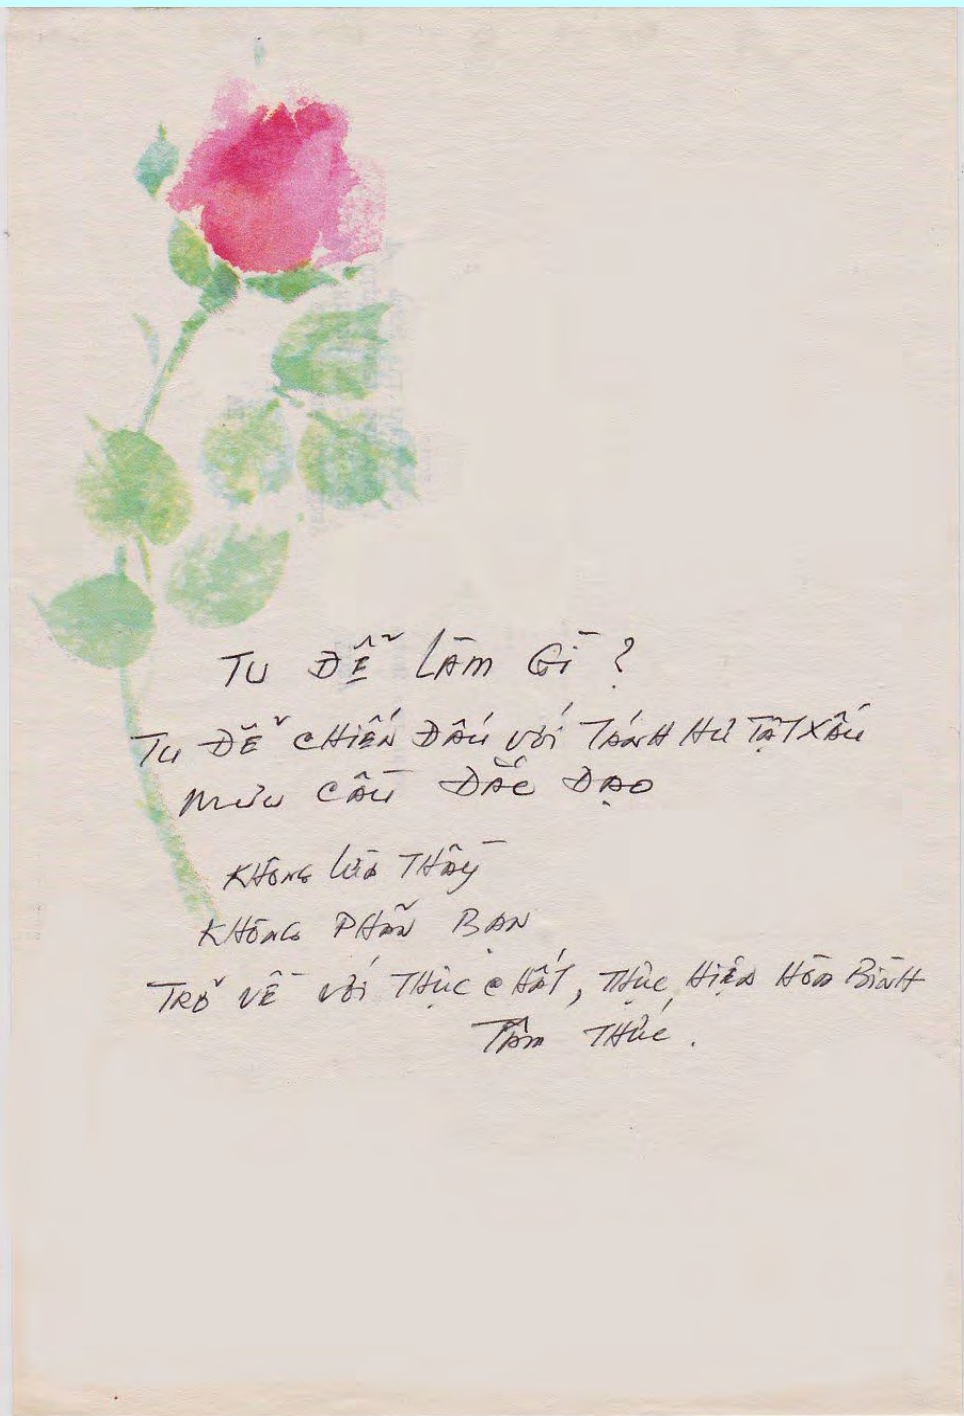 TU ĐỂ LÀM GÌ ?
TU ĐỂ CHIẾN ĐẤU VỚI TÁNH HƯ TẬT XẤU
MƯU CẦU ĐẮC ĐẠO
KHÔNG LỪA THẦY
KHÔNG PHẢN BẠN
TRỞ VỀ VỚI THỰC CHẤT, THỰC HIỆN HÒA BÌNH
TÂM THỨC.